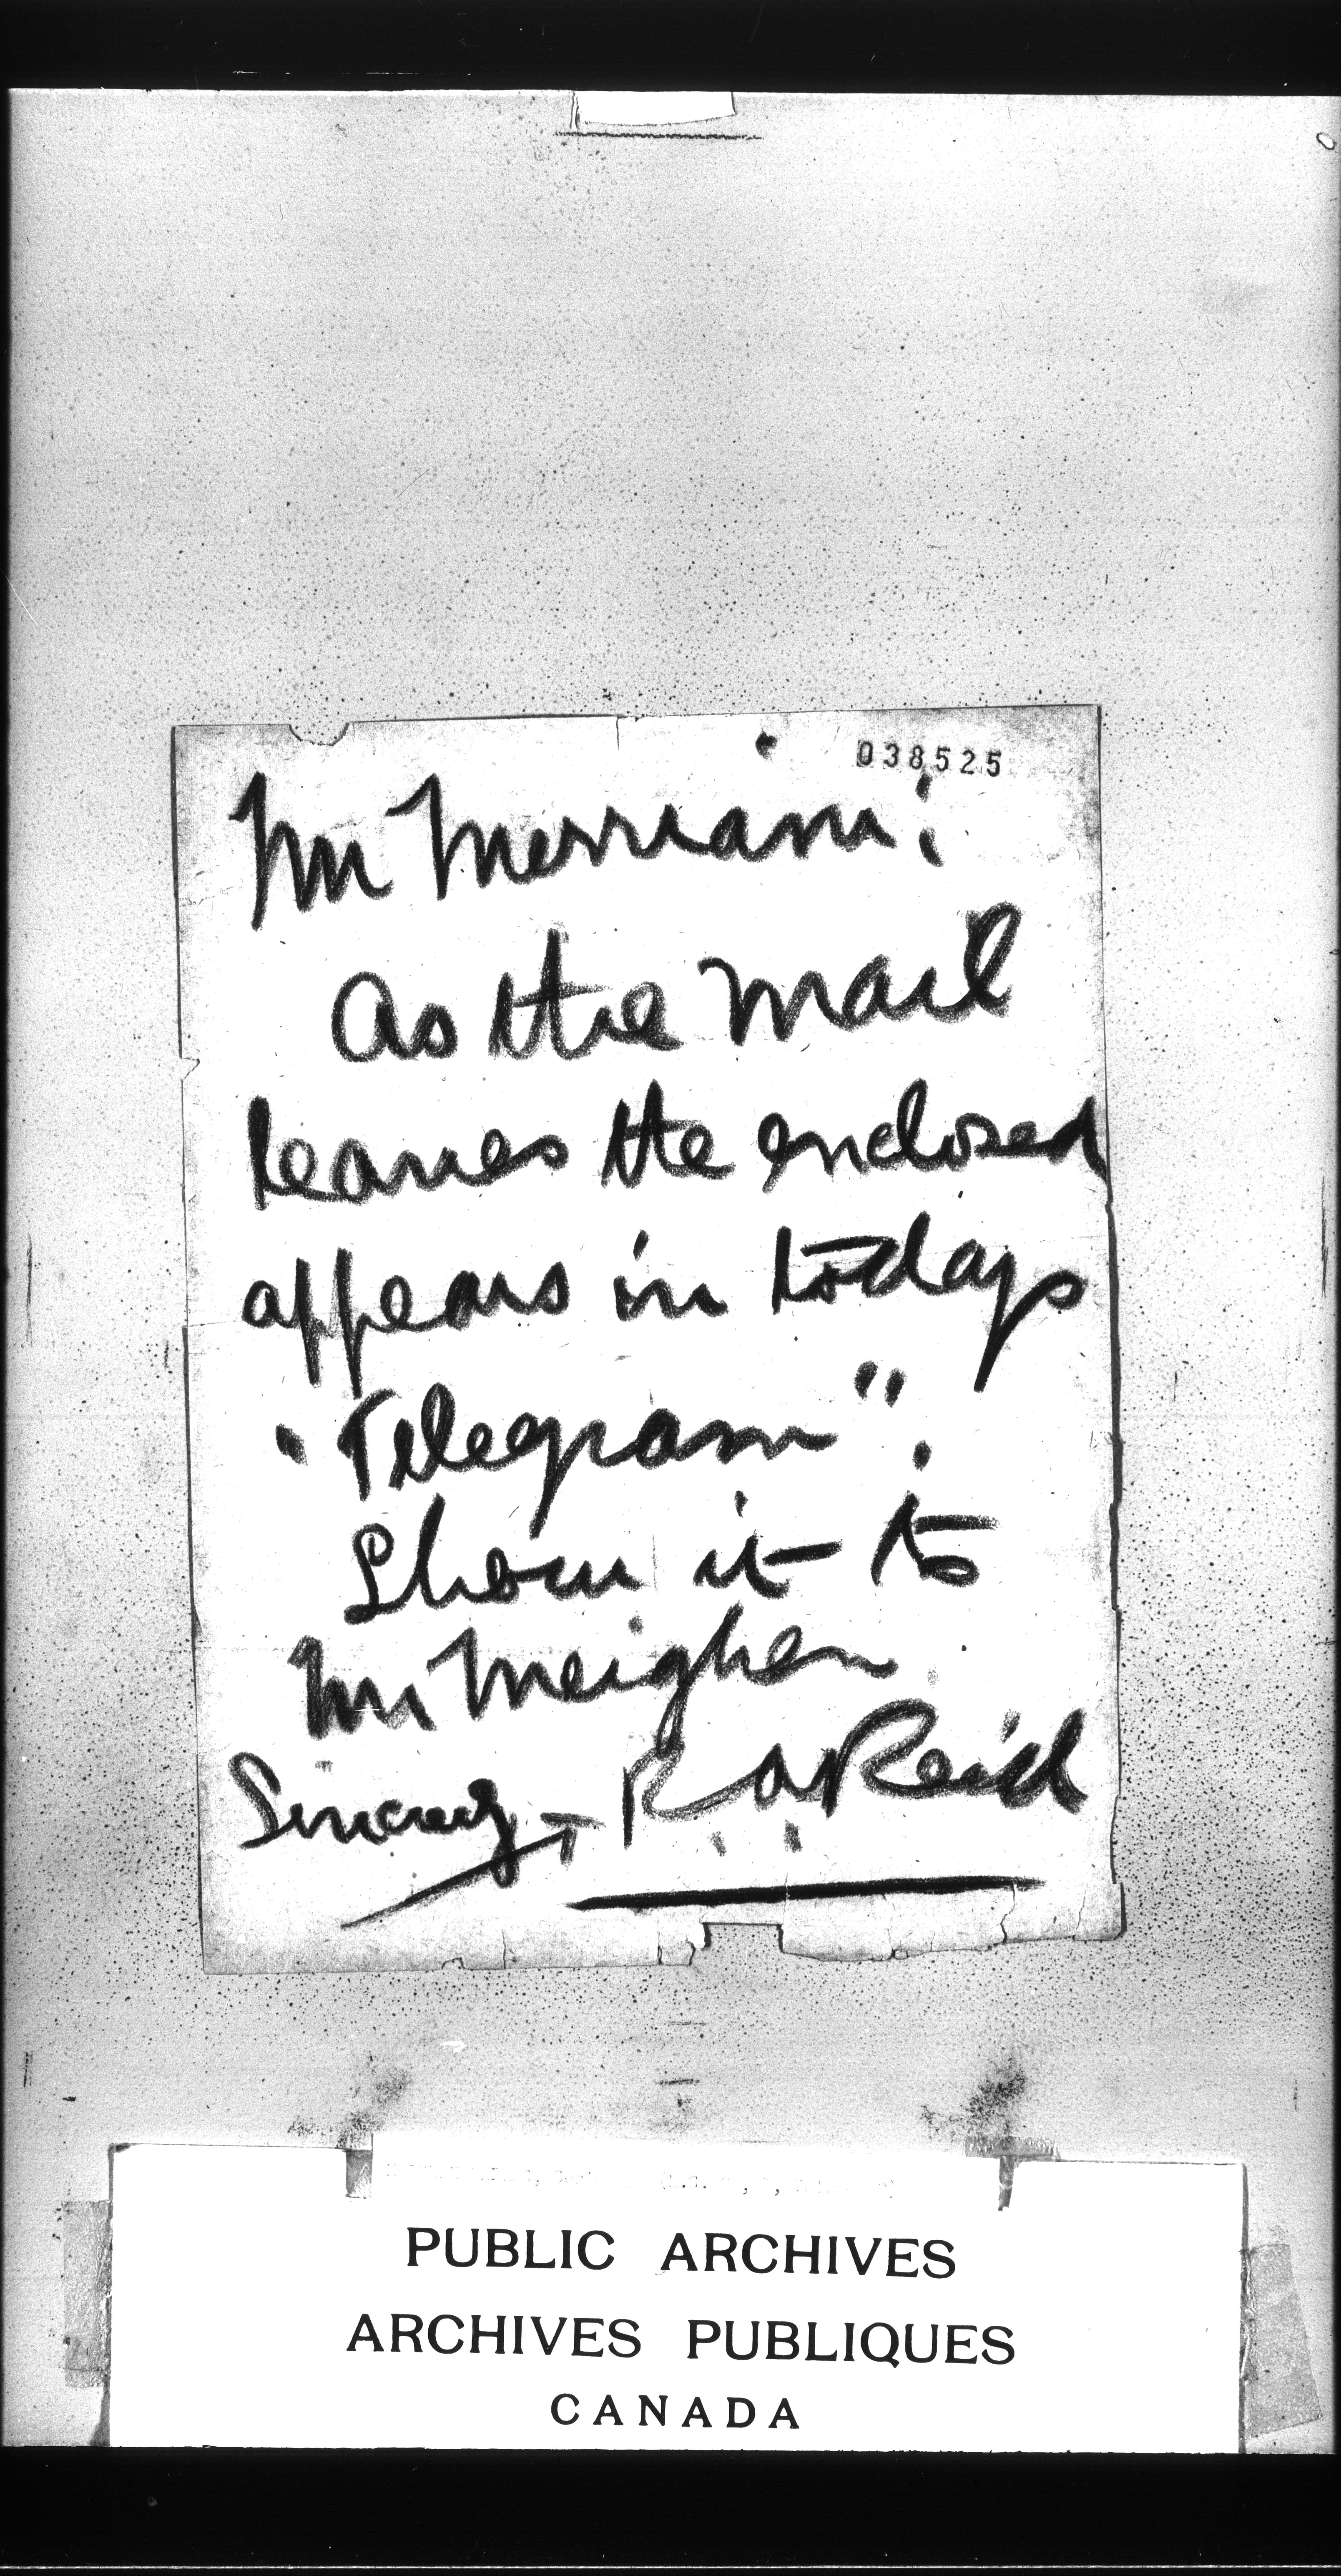 038525
Mr Merriam:
As the mail
leaves the enclosed
appears in todays
"Telegram".
Show it to
Mr Meighen.
Sincerely, R. A. Reid
PUBLIC ARCHIVES
ARCHIVES PUBLIQUES
CANADA